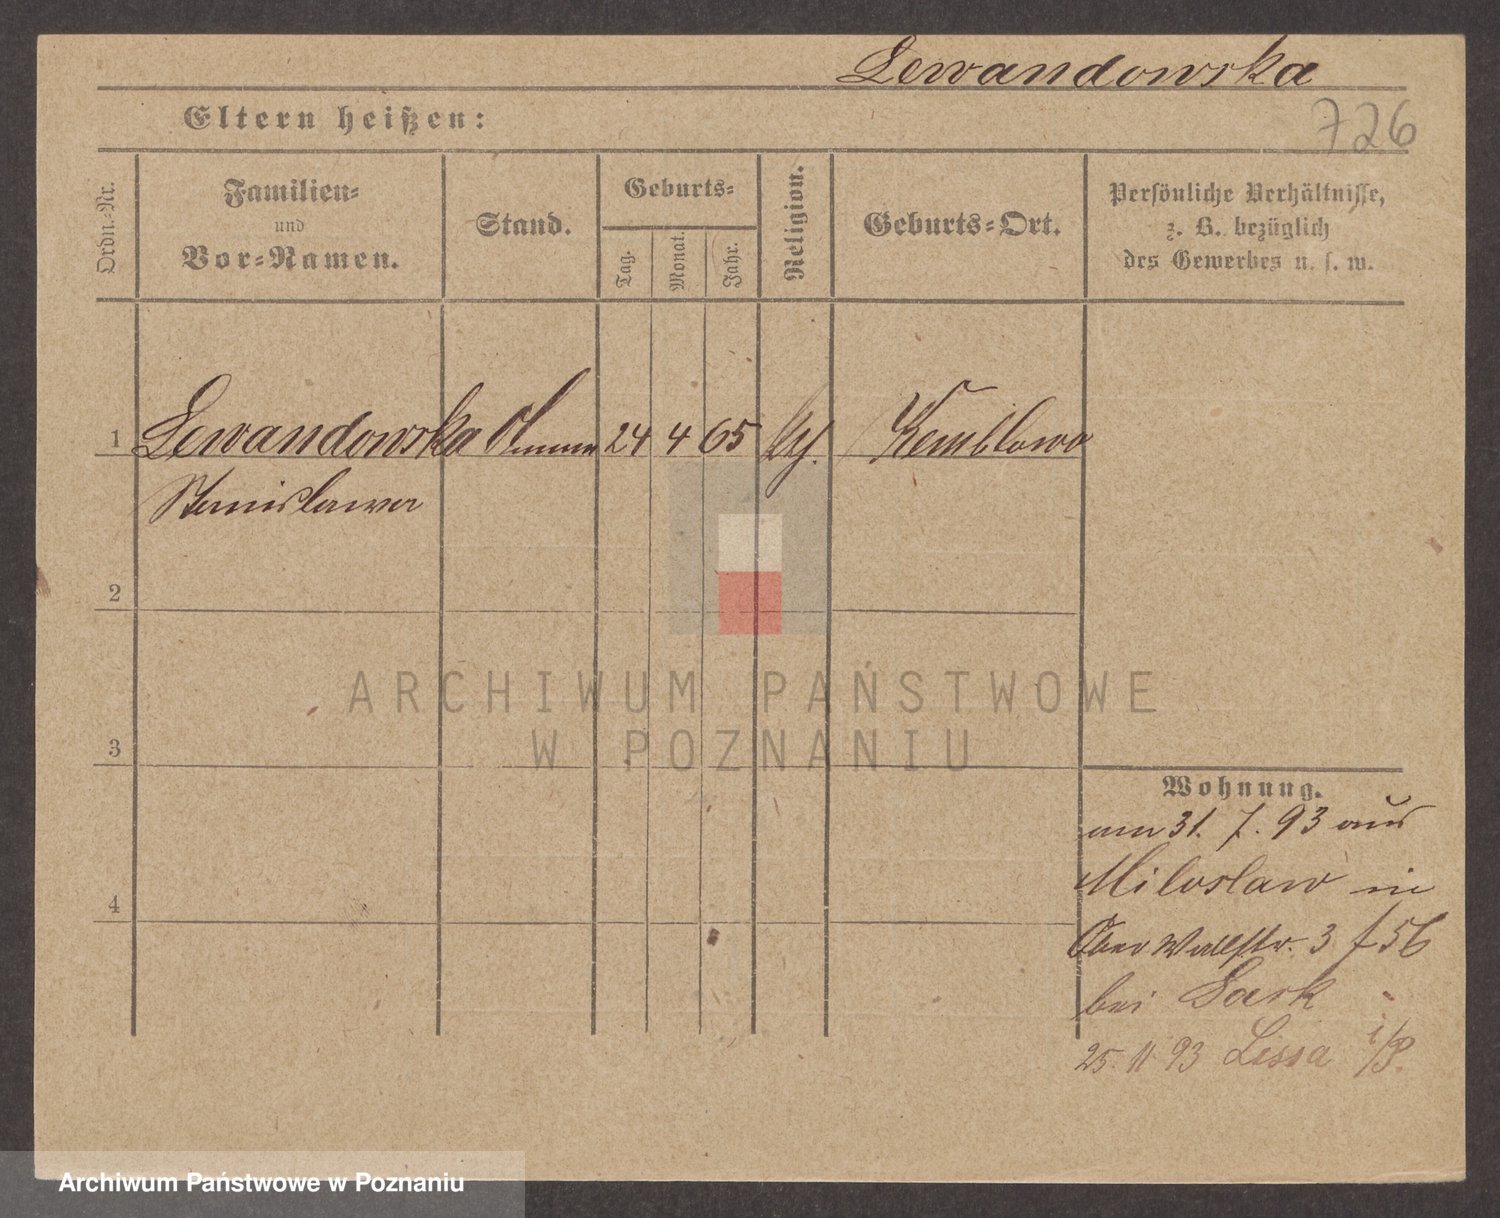 Lewandowska
Eltern heißen:
726
Ordn.-Nr.
Familien-
und
Vor-Namen.
Stand.
Geburts-
Tag.
Monat.
Jahr.
Religion.
Geburts-Ort.
Persönliche Verhältnisse,
z. B. bezüglich
des Gewerbes u. s. w.
1 Lewandowska Amme 24 4 65 Kemblowo
Stanislawa
2
3
4
Wohnung.
am 31. 7. 93 aus
Miloslaw in
Ober Wallstr. 3 f 56
bei Sark
25. 11 93 Lissa i/P.
ARCHIWUM PAŃSTWOWE
W POZNANIU
Archiwum Państwowe w Poznaniu